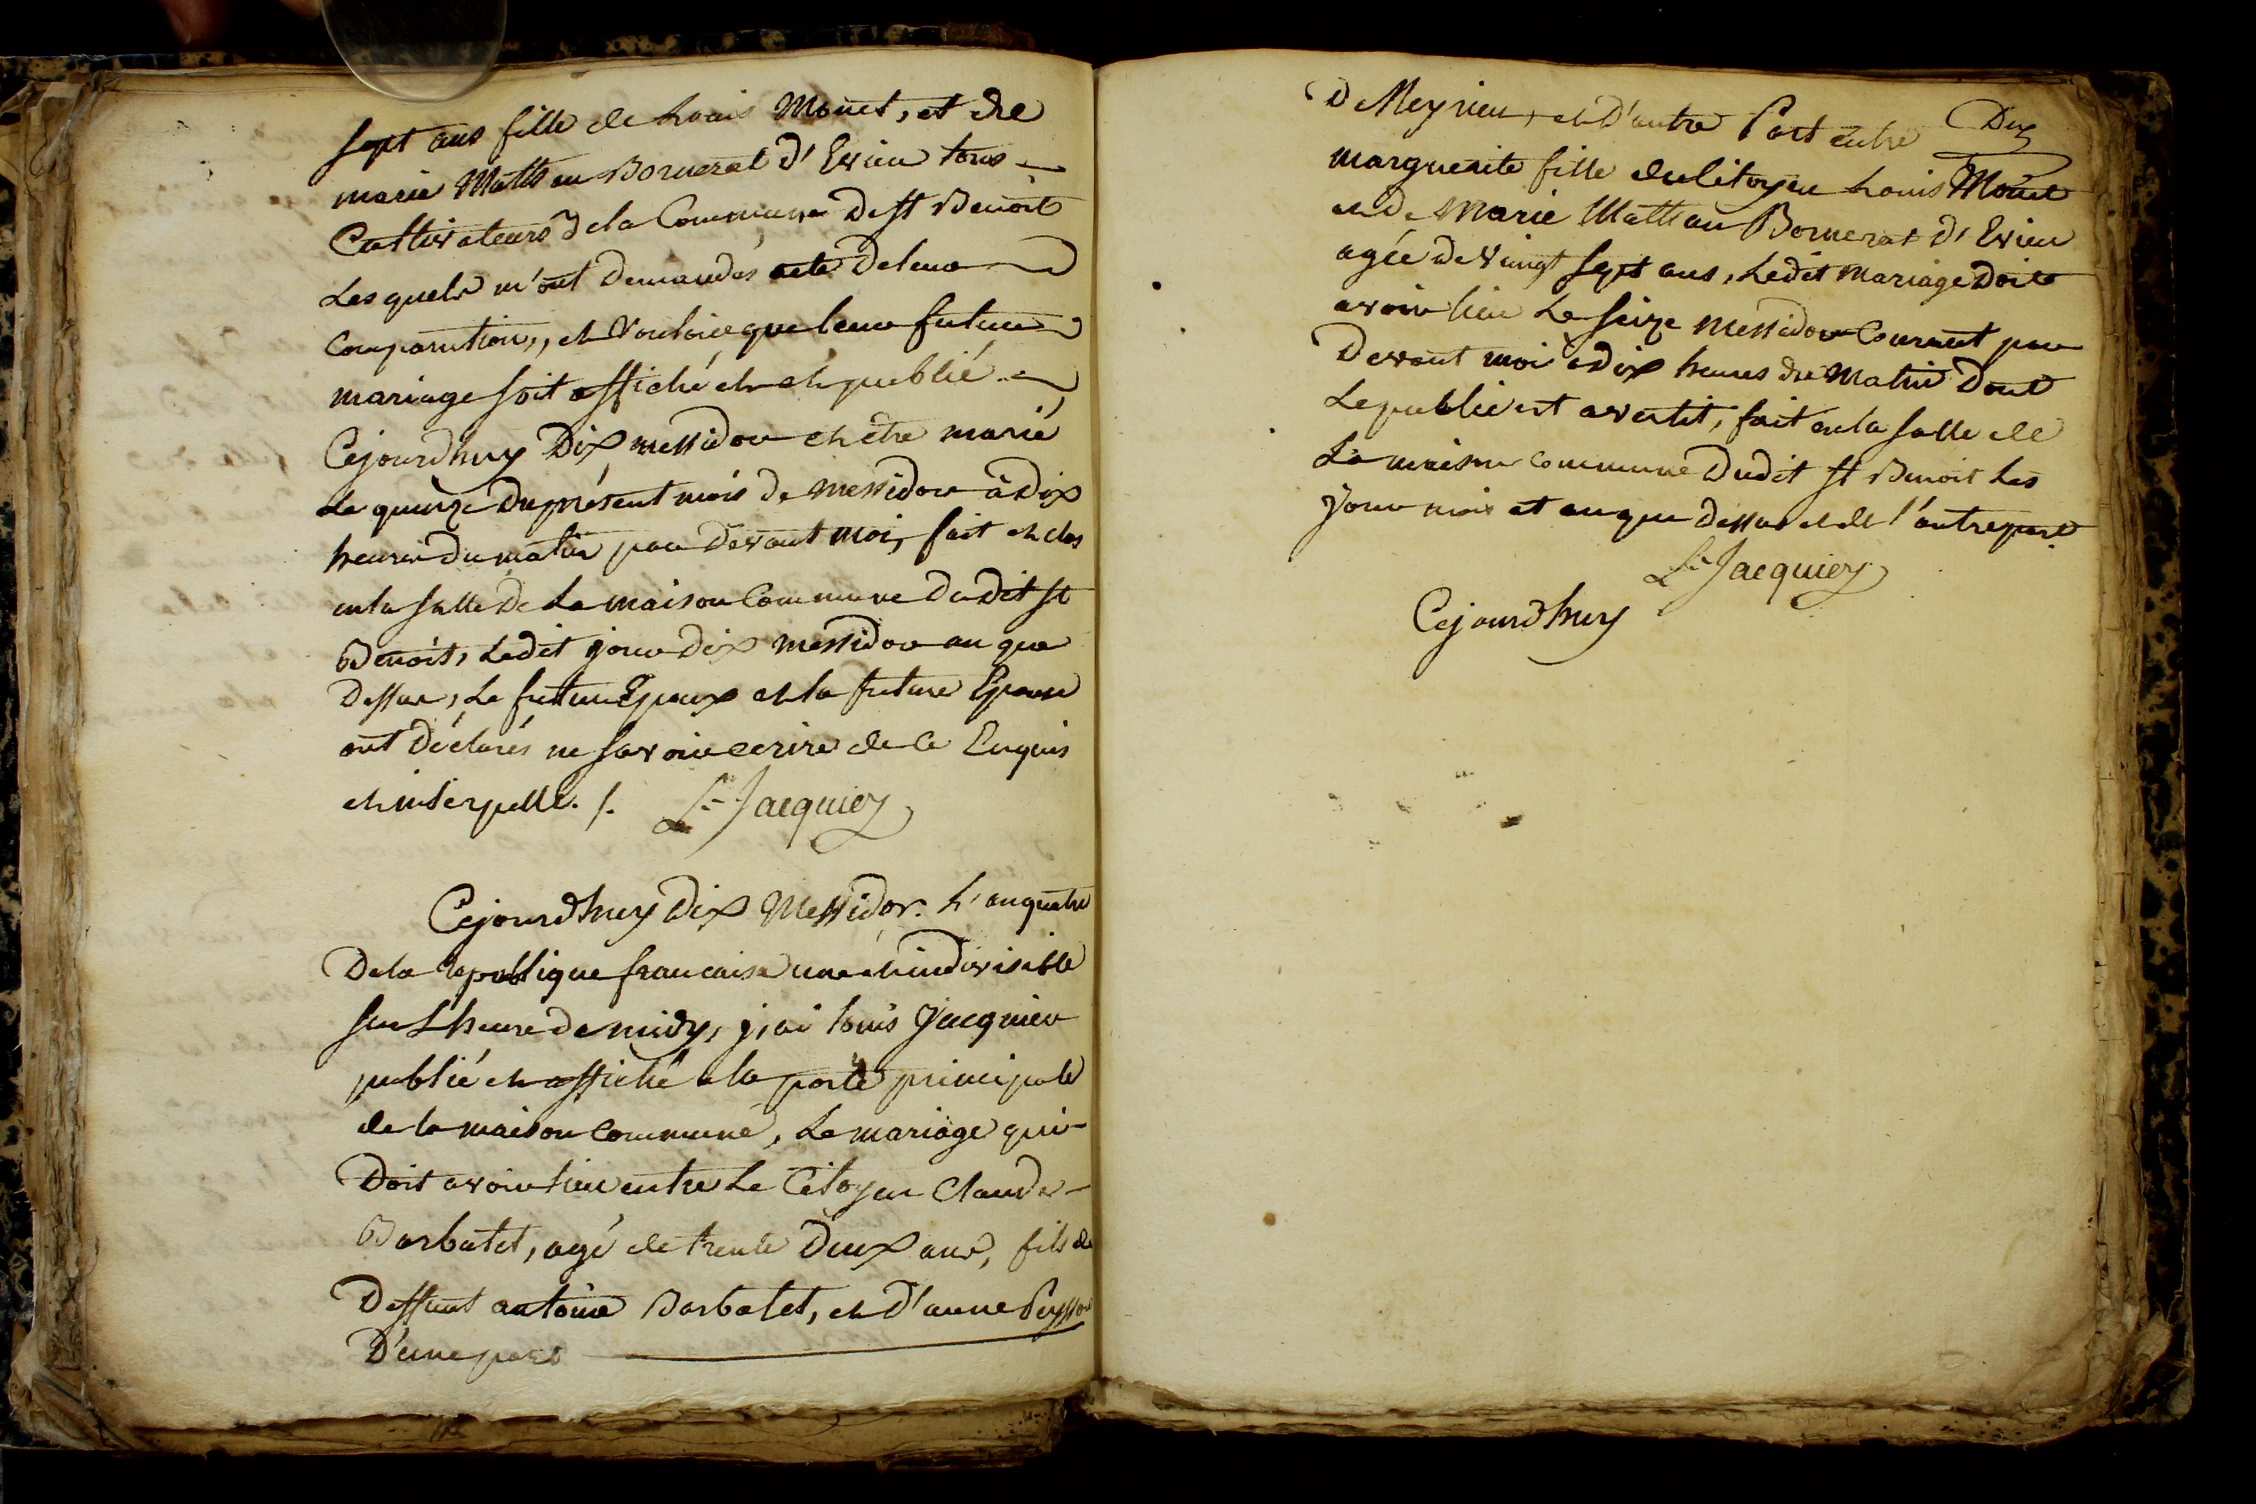 sept ans fille de Louis Monet, et de
marie Matt au Bornerat d'Evieu tous
Cultivateurs de la Commune De St Benoit
Les quels m'ont Demandés acte De leur
comparution, et Vouloir que leur future
mariage soit affiché et et publié
Cejourdhuy Dix messidor et etre marié
Le quinze Du présent mois de Messidor à Dix
heures du matin par devant moi, fait et clos
en la salle De La maison Commune Du Dit St
Benoit, Ledit jour Dix messidor an que
Dessus, Le futur Epoux et la future Epouse
ont Déclarés ne savoir ecrire de ce Enquis
et interpellé. /. Ls Jacquier
Cejourdhuy Dix Messidor. L'an quatre
De la republique francaise une et indivisible
sur L heure de midy, j'ai louis Jacquier
publié et affiché a la porte principale
de la maison commune, Le mariage qui
Doit avoir lieu entre Le Citoyen Claude
Barbatet, agé de trente Deux ans, fils de
Deffunt antoine Barbatet, et D'anne Peysson
D'une part
D Meyrieu, et D'autre Part entre Dlle
marguerite fille du Citoyen Louis Monet
et De Marie Matt au Bornerat d'Evieu
agée de Vingt sept ans, Ledit Mariage Doit
avoir lieu Le seize messidor Courant par
Devant moi à Dix heures du Matin Dont
Le public est avertit, fait en la salle de
La maison commune Dudit St Benoit Les
Jour mois et an que dessus et de l'autre part
Ls Jacquier
Cejourdhuy